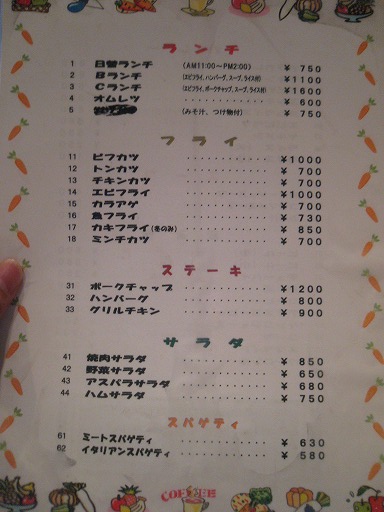 ランチ
1 日替ランチ (AM11:00~PM2:00) ¥ 750
2 Bランチ (エビフライ、ハンバーグ、スープ、ライス付) ¥1100
3 Cランチ (エビフライ、ポークチャップ、スープ、ライス付) ¥1600
4 オムレツ ············ ¥ 600
5 (みそ汁、つけ物付) ¥ 750
フライ
11 ビフカツ ············ ¥1000
12 トンカツ ············ ¥ 700
13 チキンカツ ············ ¥ 700
14 エビフライ ············ ¥1000
15 カラアゲ ············ ¥ 700
16 魚フライ ············ ¥ 730
17 カキフライ(冬のみ) ············ ¥ 850
18 ミンチカツ ············ ¥ 700
ステーキ
31 ポークチャップ ············ ¥1200
32 ハンバーグ ············ ¥ 800
33 グリルチキン ············ ¥ 900
サラダ
41 焼肉サラダ ············ ¥ 850
42 野菜サラダ ············ ¥ 650
43 アスパラサラダ ············ ¥ 680
44 ハムサラダ ············ ¥ 750
スパゲティ
61 ミートスパゲティ ············ ¥ 630
62 イタリアンスパゲティ ············ ¥ 580
COFFEE